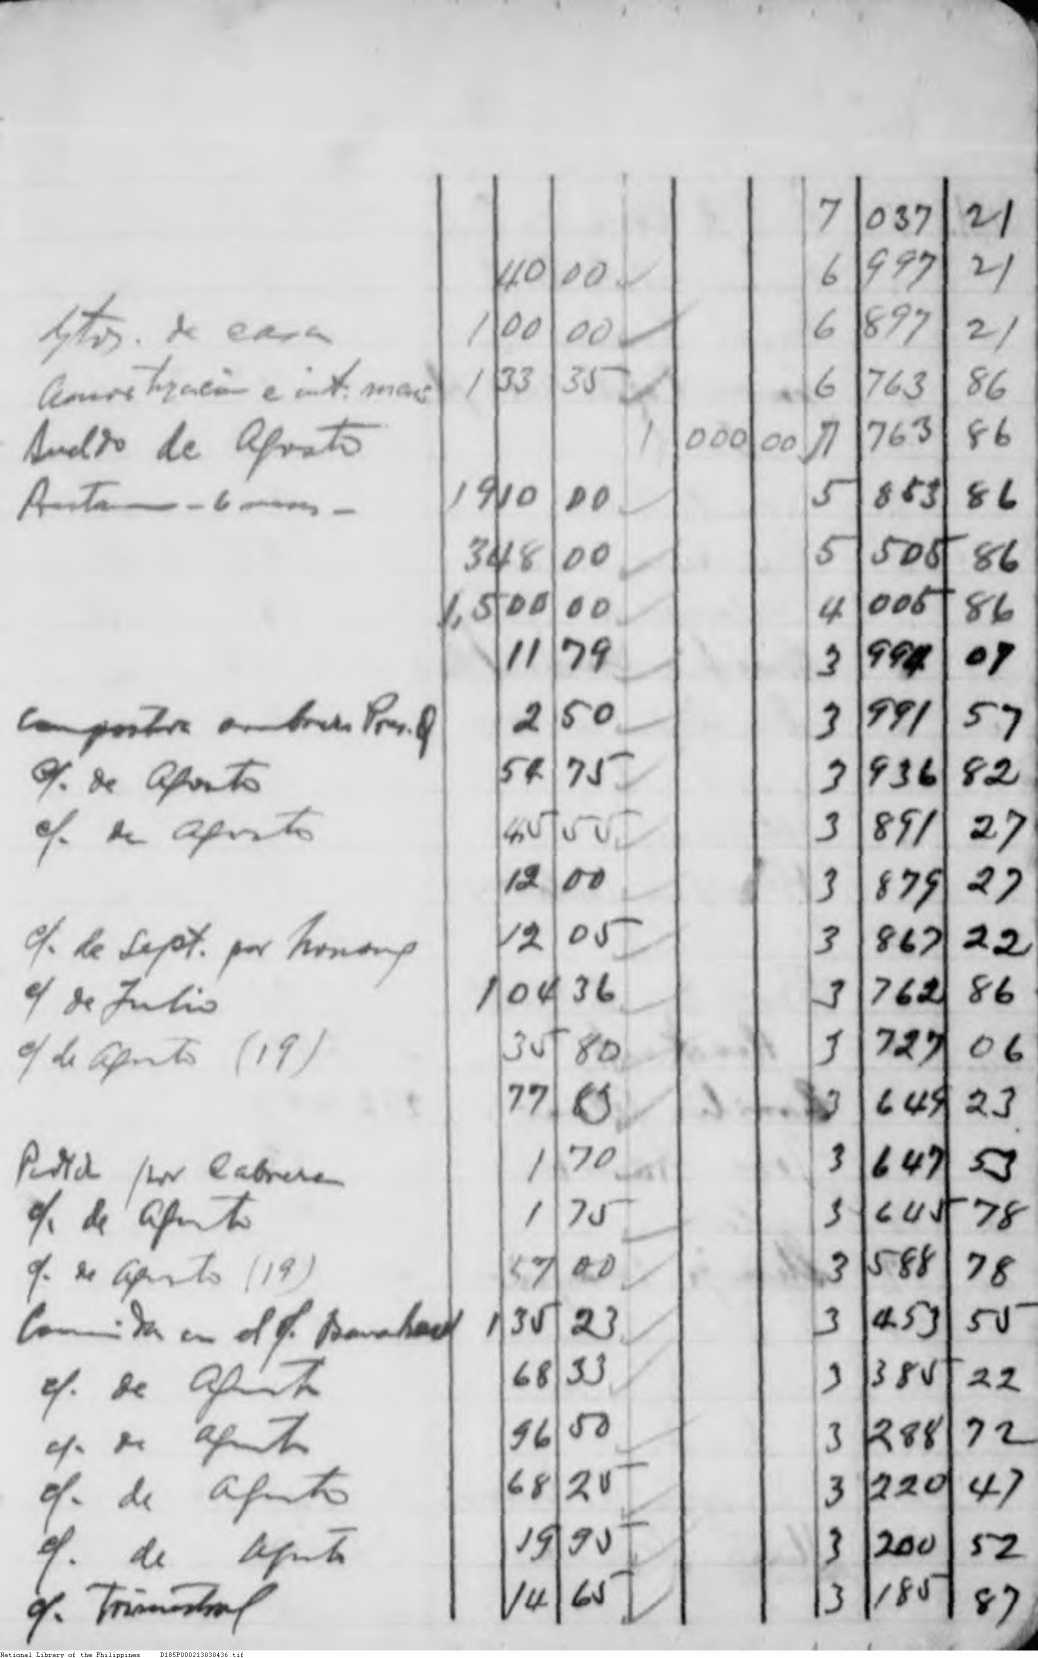 7 037 21
40 00 6 997 21
Gtos. de casa 100 00 6 897 21
Amortización e int. mens 133 35 6 763 86
Sueldo de Agosto 1 000 00 7 763 86
1910 00 5 853 86
348 00 5 505 86
1,500 00 4 005 86
11 79 3 994 07
Compostura sombrero Pres. Q 2 50 3 991 57
c/. de Agosto 54 75 3 936 82
c/. de Agosto 45 55 3 891 27
12 00 3 879 27
c/. de Sept. por 12 05 3 867 22
c/ de Julio 104 36 3 762 86
c/ de Agosto (19) 35 80 3 727 06
77 83 3 649 23
por Cabrera 1 70 3 647 53
c/. de Agosto 1 75 3 645 78
c/. de Agosto (19) 57 00 3 588 78
Comida en el 135 23 3 453 55
c/. de Agosto 68 33 3 385 22
c/. de Agosto 96 50 3 288 72
c/. de Agosto 68 25 3 220 47
c/. de Agosto 19 95 3 200 52
c/. Trimestral 14 65 3 185 87
National Library of the Philippines D185P000213838436.tif